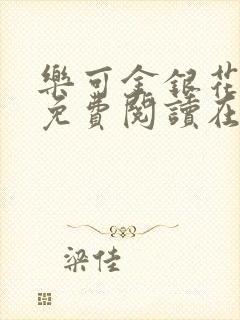 樂可金銀花
免費閱讀在
梁佳